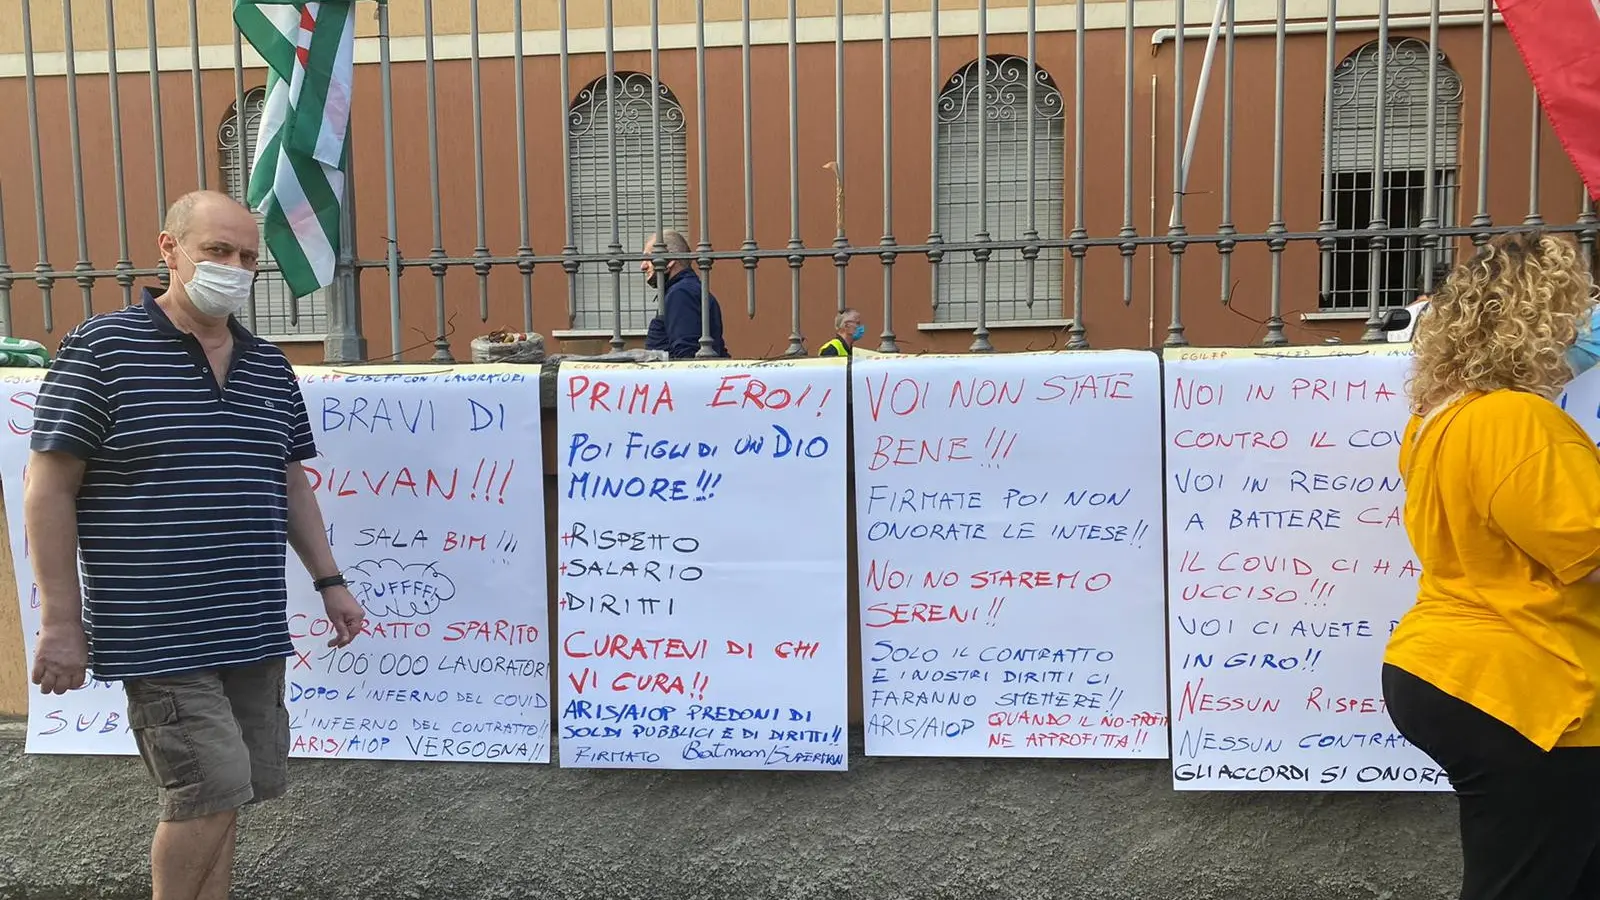 BRAVI DI
SILVAN!!!
SALA BIM!!!
PUFFFF!
CONTRATTO SPARITO
X 100'000 LAVORATORI
DOPO L'INFERNO DEL COVID
L'INFERNO DEL CONTRATTO!!
ARIS/AIOP VERGOGNA!!
PRIMA EROI!
POI FIGLI DI UN DIO
MINORE!!!
+RISPETTO
+SALARIO
+DIRITTI
CURATEVI DI CHI
VI CURA!!
ARIS/AIOP PREDONI DI
SOLDI PUBBLICI E DI DIRITTI!!
FIRMATO Batman/SUPERMAN
VOI NON STATE
BENE!!!
FIRMATE POI NON
ONORATE LE INTESE!!
NOI NO STAREMO
SERENI!!
SOLO IL CONTRATTO
E I NOSTRI DIRITTI CI
FARANNO SMETTERE!!
ARIS/AIOP QUANDO IL NO-PROFIT
NE APPROFITTA!!
NOI IN PRIMA
CONTRO IL COV
VOI IN REGION
A BATTERE CA
IL COVID CI HA
UCCISO!!!
VOI CI AVETE P
IN GIRO!!
NESSUN RISPET
NESSUN CONTRAT
GLI ACCORDI SI ONOR